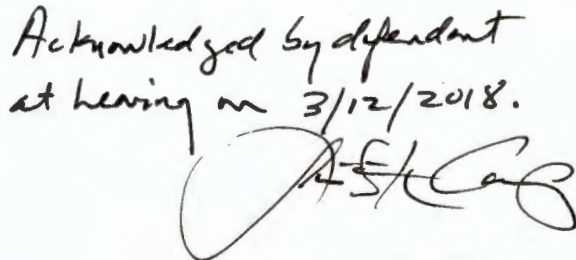 Acknowledged by defendant
at hearing on 3/12/2018.